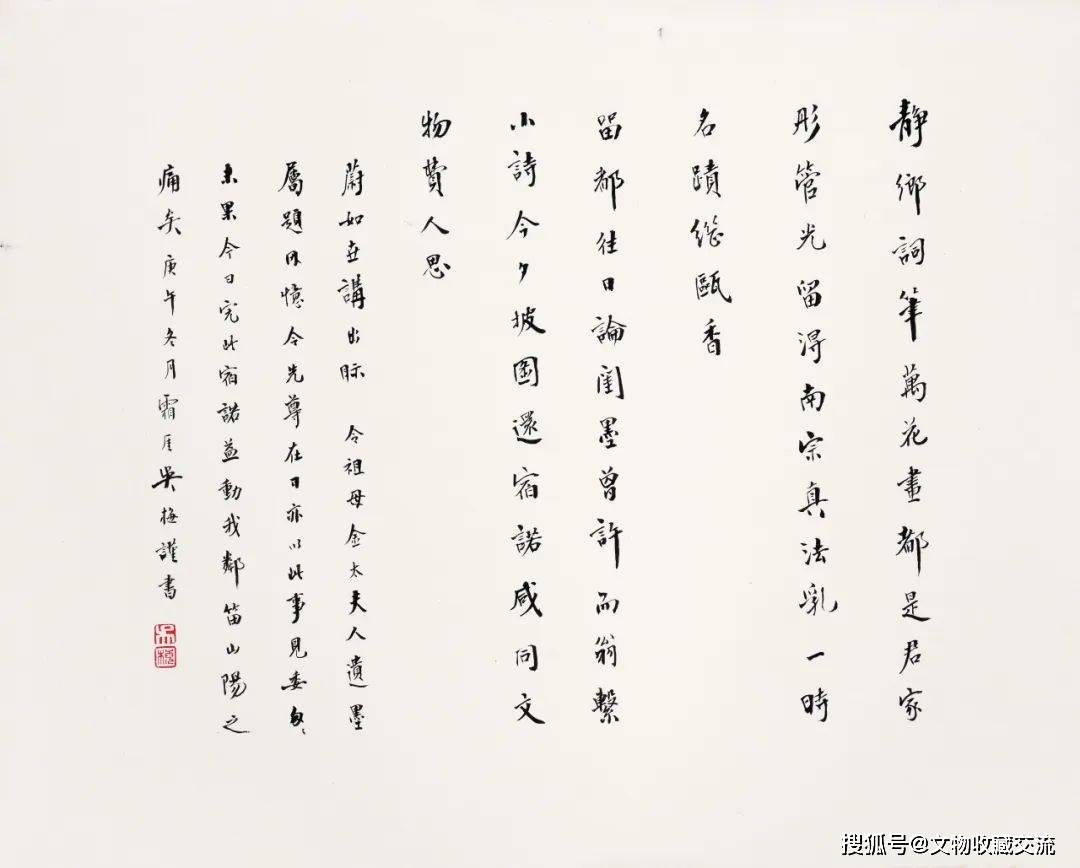 静鄉詞筆萬花畫都是君家
彤管光留淂南宗真法乳一時
名蹟繼甌香
留都往日論閨墨曾許而翁繫
小詩今夕披圖還宿諾咸同文
物費人思
蔚如世講出眎 令祖母金太夫人遺墨
屬題因憶令先尊在日亦以此事見委匆匆
未果今日完此宿諾益動我鄰笛山陽之
痛矣庚午冬月霜厓吳梅謹書
吳梅
搜狐号@文物收藏交流